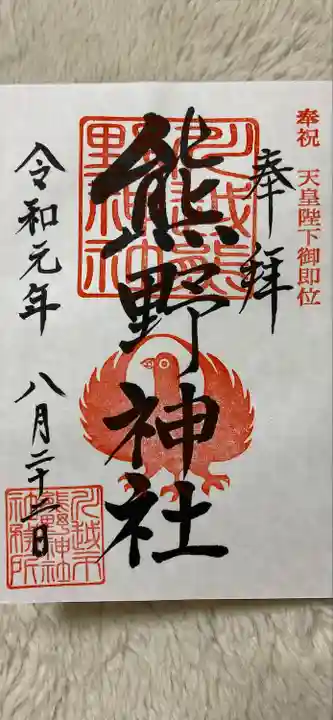 奉祝 天皇陛下御即位
奉拝
熊野神社
令和元年 八月二十二日
川越熊野神社
川越市熊野神社社務所